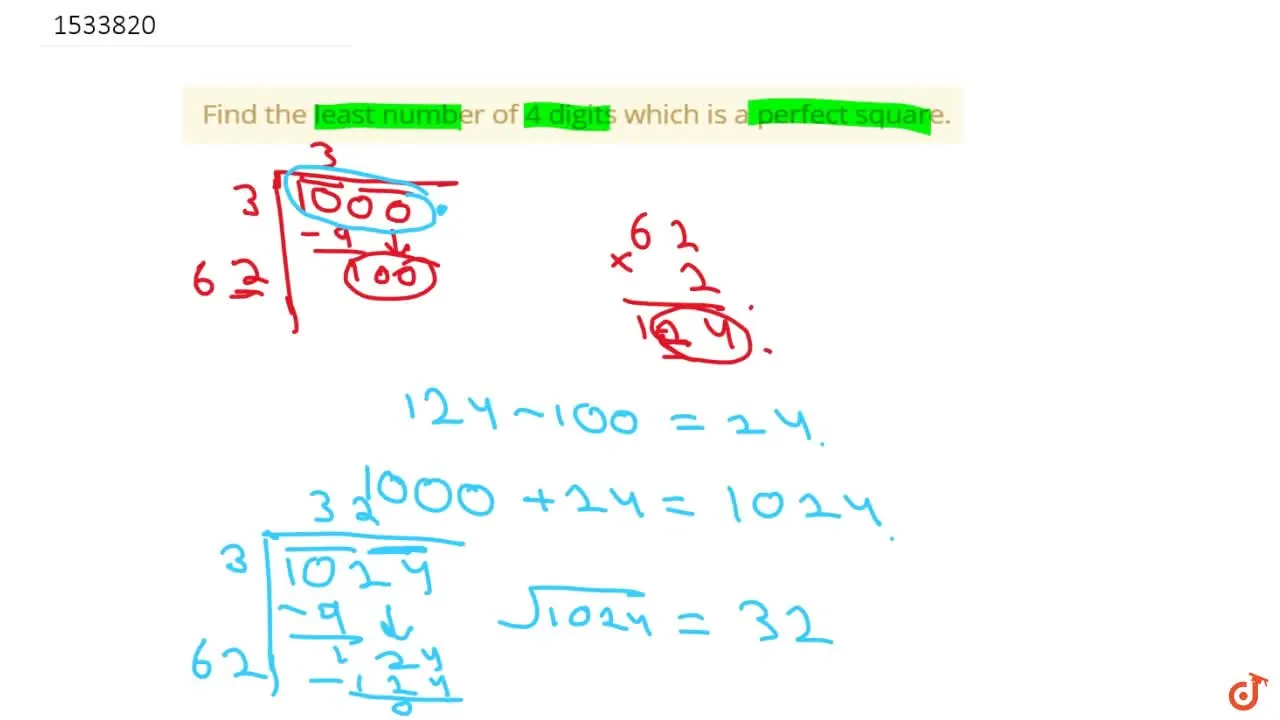 1533820
Find the least number of 4 digits which is a perfect square.
3
3 1000.
- 9
62 100
62
× 2
124.
124 - 100 = 24.
1000 + 24 = 1024.
32
3 1024
- 9
62 124
- 124
0
√1024 = 32